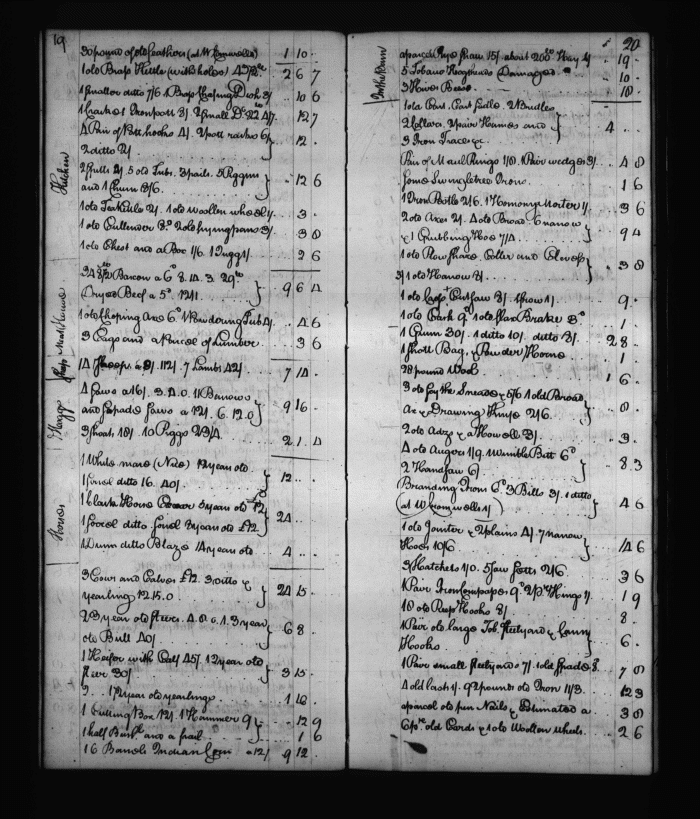 19
30 pound of old feathers (at W Cromwells) 1 10 .
1 old Brass Kettle (with holes) 2 6 7
1 smaller ditto 7/6 1 Brass Chafing Dish 3/ . 10 6
1 Crackt Ironpott 3/. 2 Small 12 7
4 Pair of Potthooks 4/. 2 pott racks 6/ } . 12 .
2 ditto 2/
Kitchen
2 Butts 2/. 5 old Tubs. 3 pails. 5 Piggins } . 12 6
and 1 Churn 3/6.
1 old Teakitle 2/. 1 old woollen wheel . 3 .
1 old Cullender 8d 2 old frying pans 3/. 3 8
1 old Chest and a Box 1/6. 1 Jugg 1/. 2 6
Bacon a 6d 8.14.3. 29lb } 9 6 4
Dryed Beef a 5d. 12/1
Meat House
1 old Choping Axe 6d 1 Powdering Tub 4/. . 4 6
3 Baggs and a parcel of Lumber. 3 6
Sheep
14 Sheep 112/. 7 Lambs 42/. 7 14 .
Hoggs
4 Sows a 16/. 3.4.0. 11 Barrows } 9 16 .
and Spade Sows a 12/. 6.12.0
3 Shoats 18/. 10 Piggs 23/4. 2 1 4
Horses
1 White mare (Nece) 12 year old } 12 . .
1 ditto 16. 40/.
1 black Horse 5 year old £12 } 24 . .
1 Sorrel ditto 3 year old £12.
1 Dunn ditto Blaze 14 year old 4 . .
3 Cows and Calves £12. 3 ditto & } 24 15 .
yearling 12.15.0.
2 3 year old steers. 4.8.0. 1. 3 year } 6 8 .
old Bull 40/.
1 Heifer with Calf 45/. 1 2 year old } 3 15 .
Steer 30/.
2 ... 1 year old yearlings 1 16 .
1 Cutting Box 12/. 1 Hammer 9d } . 12 9
1 half Bush. and a pail . 1 6
16 Barrels Indian Corn a 12/. 9 12 .
20
a parcel Rye Straw 15/. about 200 Hay 4/ . 19 .
5 Tobacco Hogsheads Damaged . 10 .
3 Hives Bees . 10 .
1 old Cart. Cart Sadle. 2 Bridles
2 Collars. 2 pair Hames and } 4 . .
3 Iron Traces &c.
Pair of Maul Rings 1/8. 1 Pair wedges 3/. . 4 8
Some Swingletree Irons. 1 6
1 Iron Pestle 2/6. 1 Homony Morter 1/. . 3 6
2 old Axes 2/. 4 old Broad. 6 narrow } . 9 4
& 1 Grubbing Hoe 7/4.
1 old Plow Share. Coller and Clevess } . 3 8
1 old Harrow
1 old Cross Cutt saw 8/. 1 frow 1/. . 9 .
1 old 1 old Flax Brake 8d . 1 .
1 Gunn 30/. 1 ditto 10/. ditto 8/. 2 8 .
1 Shott Bag. & Powder Horne . 1 .
28 pound Wool 1 6 .
3 old Scythe Sneads & 5/6 1 old Broad } . 8 .
Ax & Drawing Knife 2/6.
2 old Adzs & a Howell 3/. . 3 .
4 old Augers 1/9. Wimble Bitt 6d } . 8 3
2 Handsaw 6/
Branding Iron 6d 3 Bills 3/. 1 ditto } 4 6
(at W Cromwells 1/)
1 old Jointer & 2 plains 4/. 7 narrow } . 14 6
Hoes 10/6
3 Hatchets 1/0. 5 Saw Setts 2/6. 3 6
1 Pair Iron Compasses 9d. 2 Pr Hings 1/. 1 9
18 old Reap Hooks 8/. 8 .
1 Pair old large Tob. Steelyard & Canny } 6 .
Hooks.
1 Pair small steelyards 7/. 1 old Spade 8. 7 8
4 old lasts 1/. 92 pounds old Iron 11/3. 12 3
a parcel old pen Nails & Estimated a . 3 8
6 pr. old Cards & 1 old Woollen wheel. 2 6